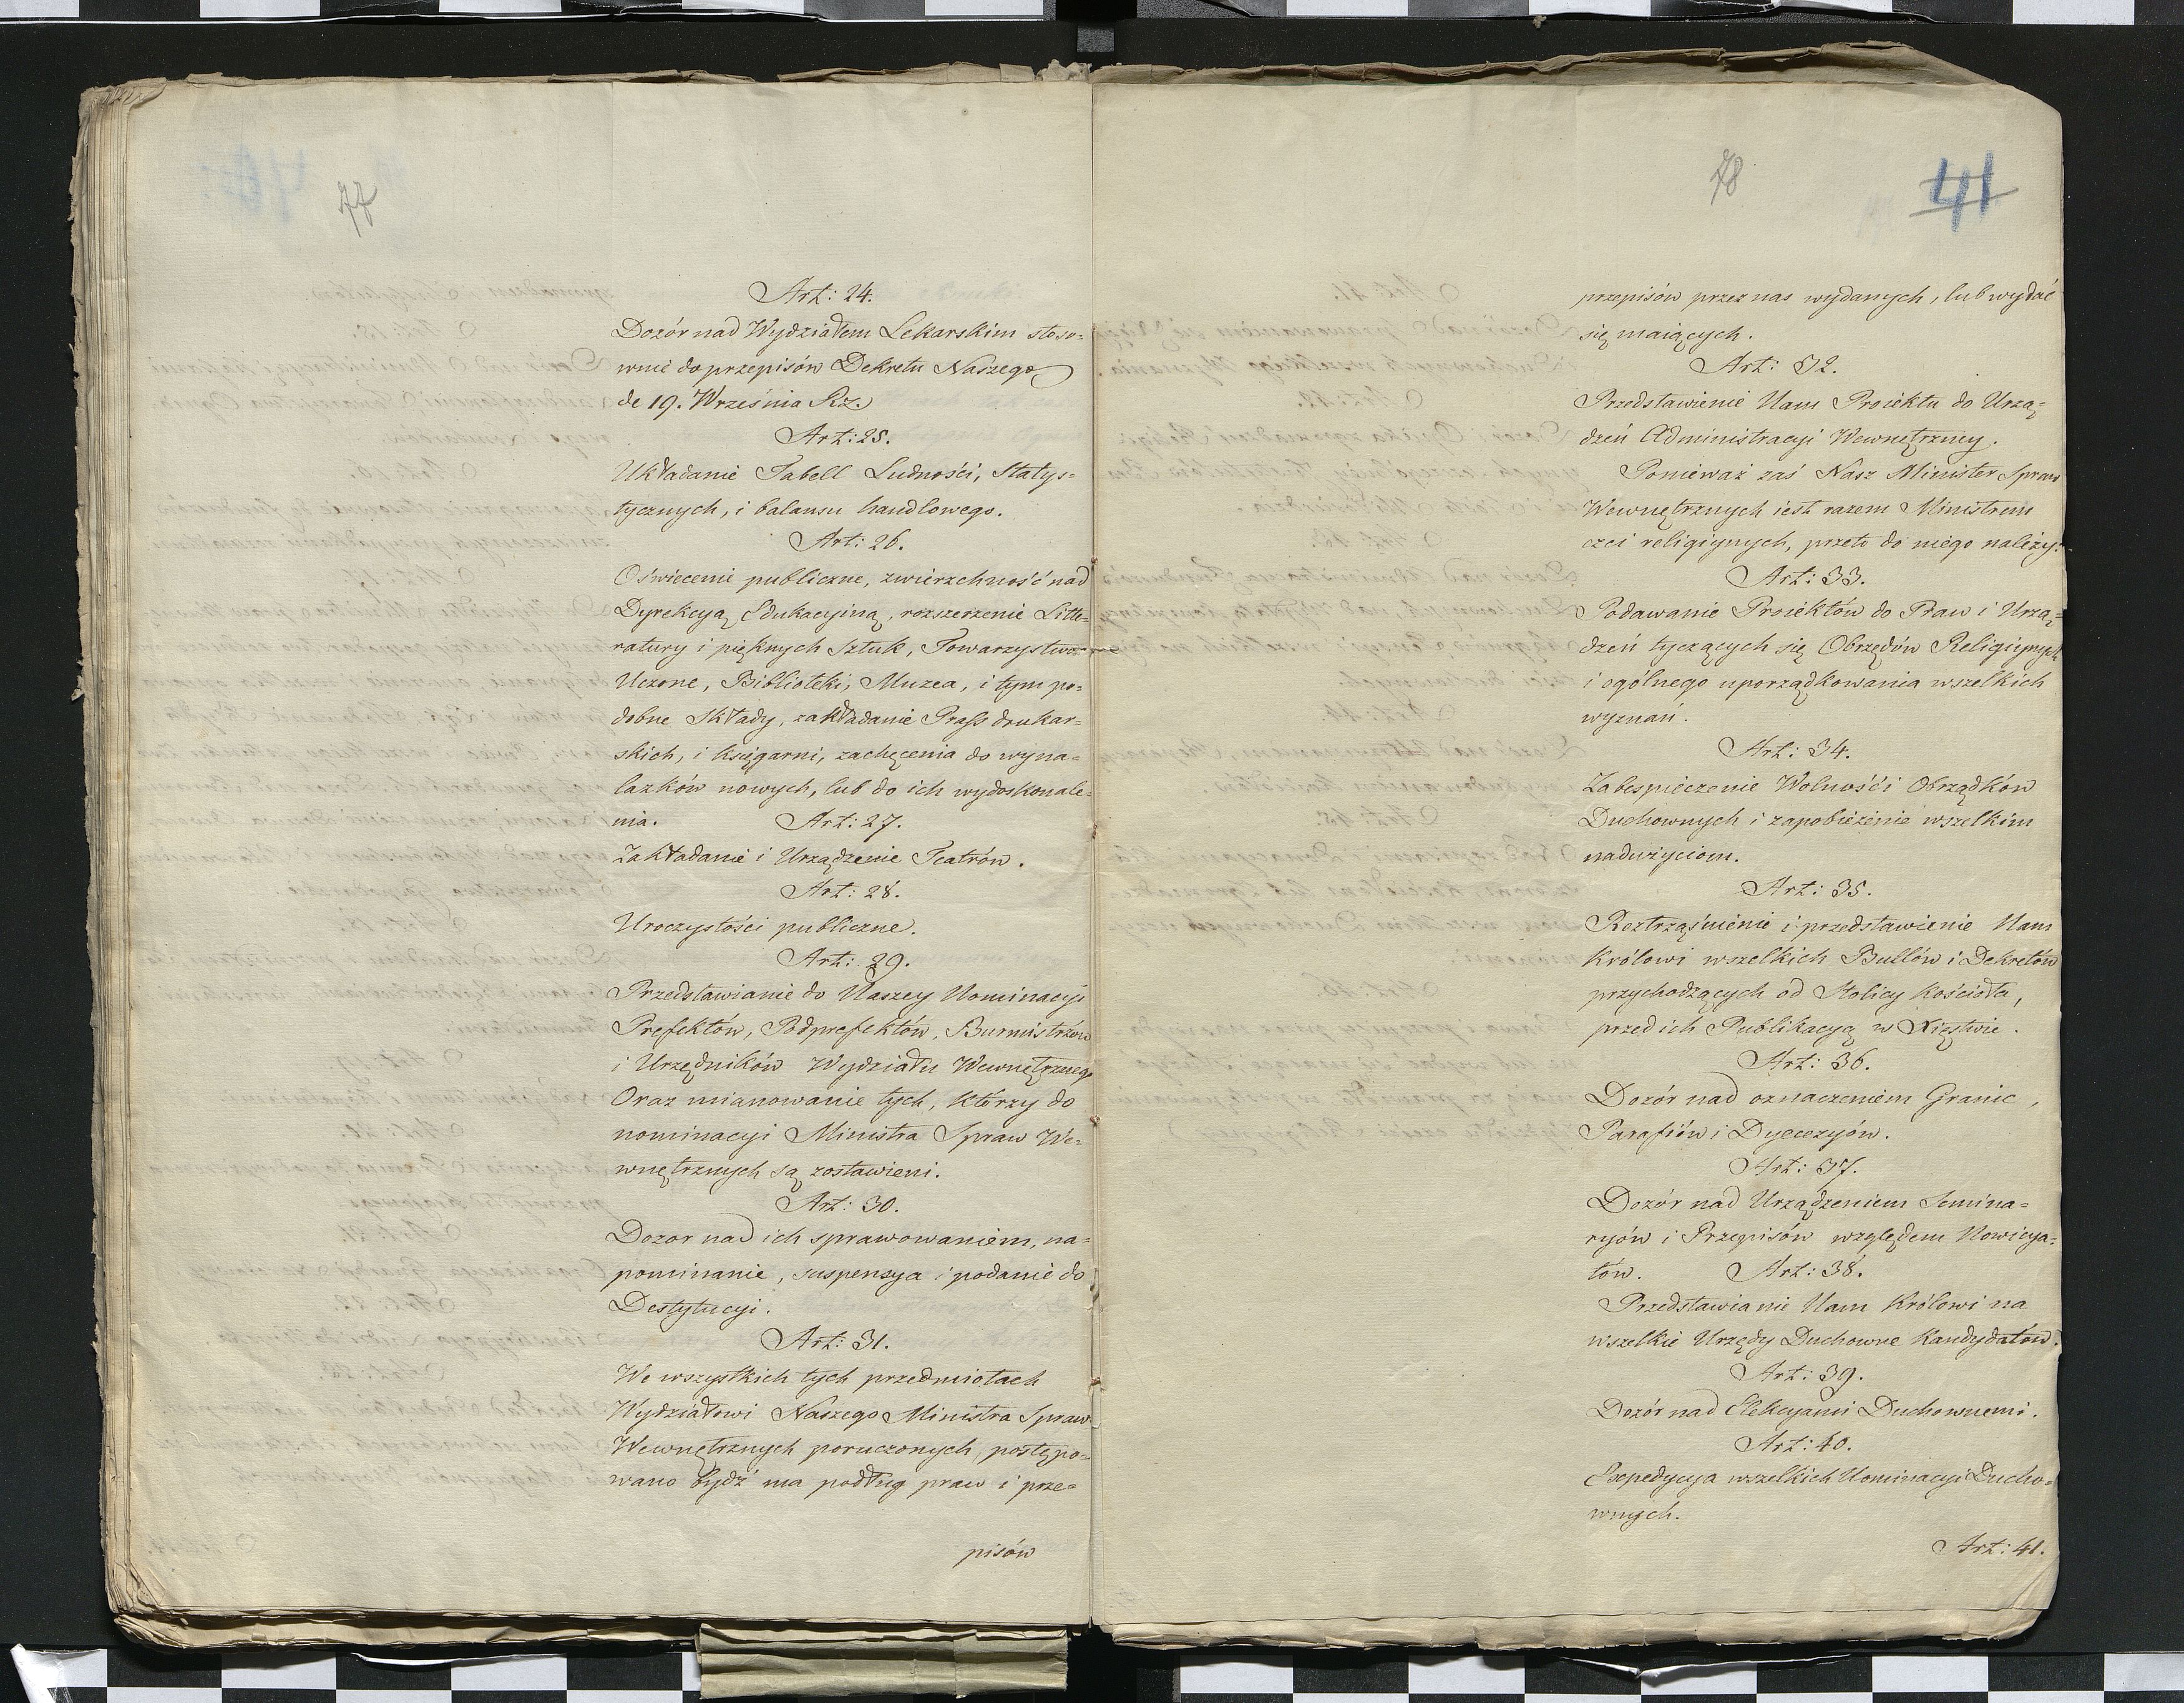 77
Art: 24.
Dozór nad Wydziałem Lekarskim stoso-
wnie do przepisów Dekretu Naszego
de 19. Września R.z.
Art: 25.
Układanie Tabell Ludności, Statys-
tycznych, i balansu handlowego.
Art: 26.
Oświecenie publiczne, zwierzchność nad
Dyrekcyą Edukacyiną, rozszerzenie Litte-
ratury i pięknych Sztuk, Towarzystwa
Uczone, Biblioteki, Muzea, i tym po-
dobne składy, zakładanie Prass drukar-
skich, i księgarni, zachęcenia do wyna-
lazków nowych, lub do ich wydoskonale-
nia. Art: 27.
Zakładanie i Urządzenie Teatrów.
Art: 28.
Uroczystości publiczne.
Art: 29.
Przedstawianie do Naszey Nominacyi
Prefektów, Podprefektów, Burmistrzów
i Urzędników Wydziału Wewnętrznego
Oraz mianowanie tych, którzy do
nominacyi Ministra Spraw We-
wnętrznych są zostawieni.
Art: 30.
Dozor nad ich sprawowaniem, na-
pominanie, suspensya i podanie do
Destytucyi.
Art: 31.
We wszystkich tych przedmiotach
Wydziałowi Naszego Ministra Spraw
Wewnętrznych poruczonych, postępo-
wano bydź ma podług praw i prze-
pisów
78
41
przepisów przez nas wydanych, lub wydać
się maiących.
Art: 32.
Przedstawienie Nam Proiektu do Urzą-
dzeń Administracyi Wewnętrzney.
Ponieważ zaś Nasz Minister Spraw
Wewnętrznych iest razem Ministrem
czci religiynych, przeto do niego należy:
Art: 33.
Podawanie Proiektów do Praw i Urzą-
dzeń tyczących się Obrzędów Religiynych
i ogólnego uporządkowania wszelkich
wyznań.
Art: 34.
Zabespieczenie Wolności Obrządków
Duchownych i zapobieżenie wszelkim
nadużyciom.
Art: 35.
Roztrząśnienie i przedstawienie Nam
Królowi wszelkich Bullów i Dekretów
przychodzących od Stolicy Kościoła,
przed ich Publikacyą w Xięstwie.
Art: 36.
Dozór nad oznaczeniem Granic,
Parafiów i Dyecezyów.
Art: 37.
Dozór nad Urządzeniem Semina-
ryów i Przepisów względem Nowicya-
tów. Art: 38.
Przedstawianie Nam Królowi na
wszelkie Urzędy Duchowne Kandydatów.
Art: 39.
Dozór nad Elekcyami Duchownemi.
Art: 40.
Expedycya wszelkich Nominacyi Ducho-
wnych.
Art: 41.